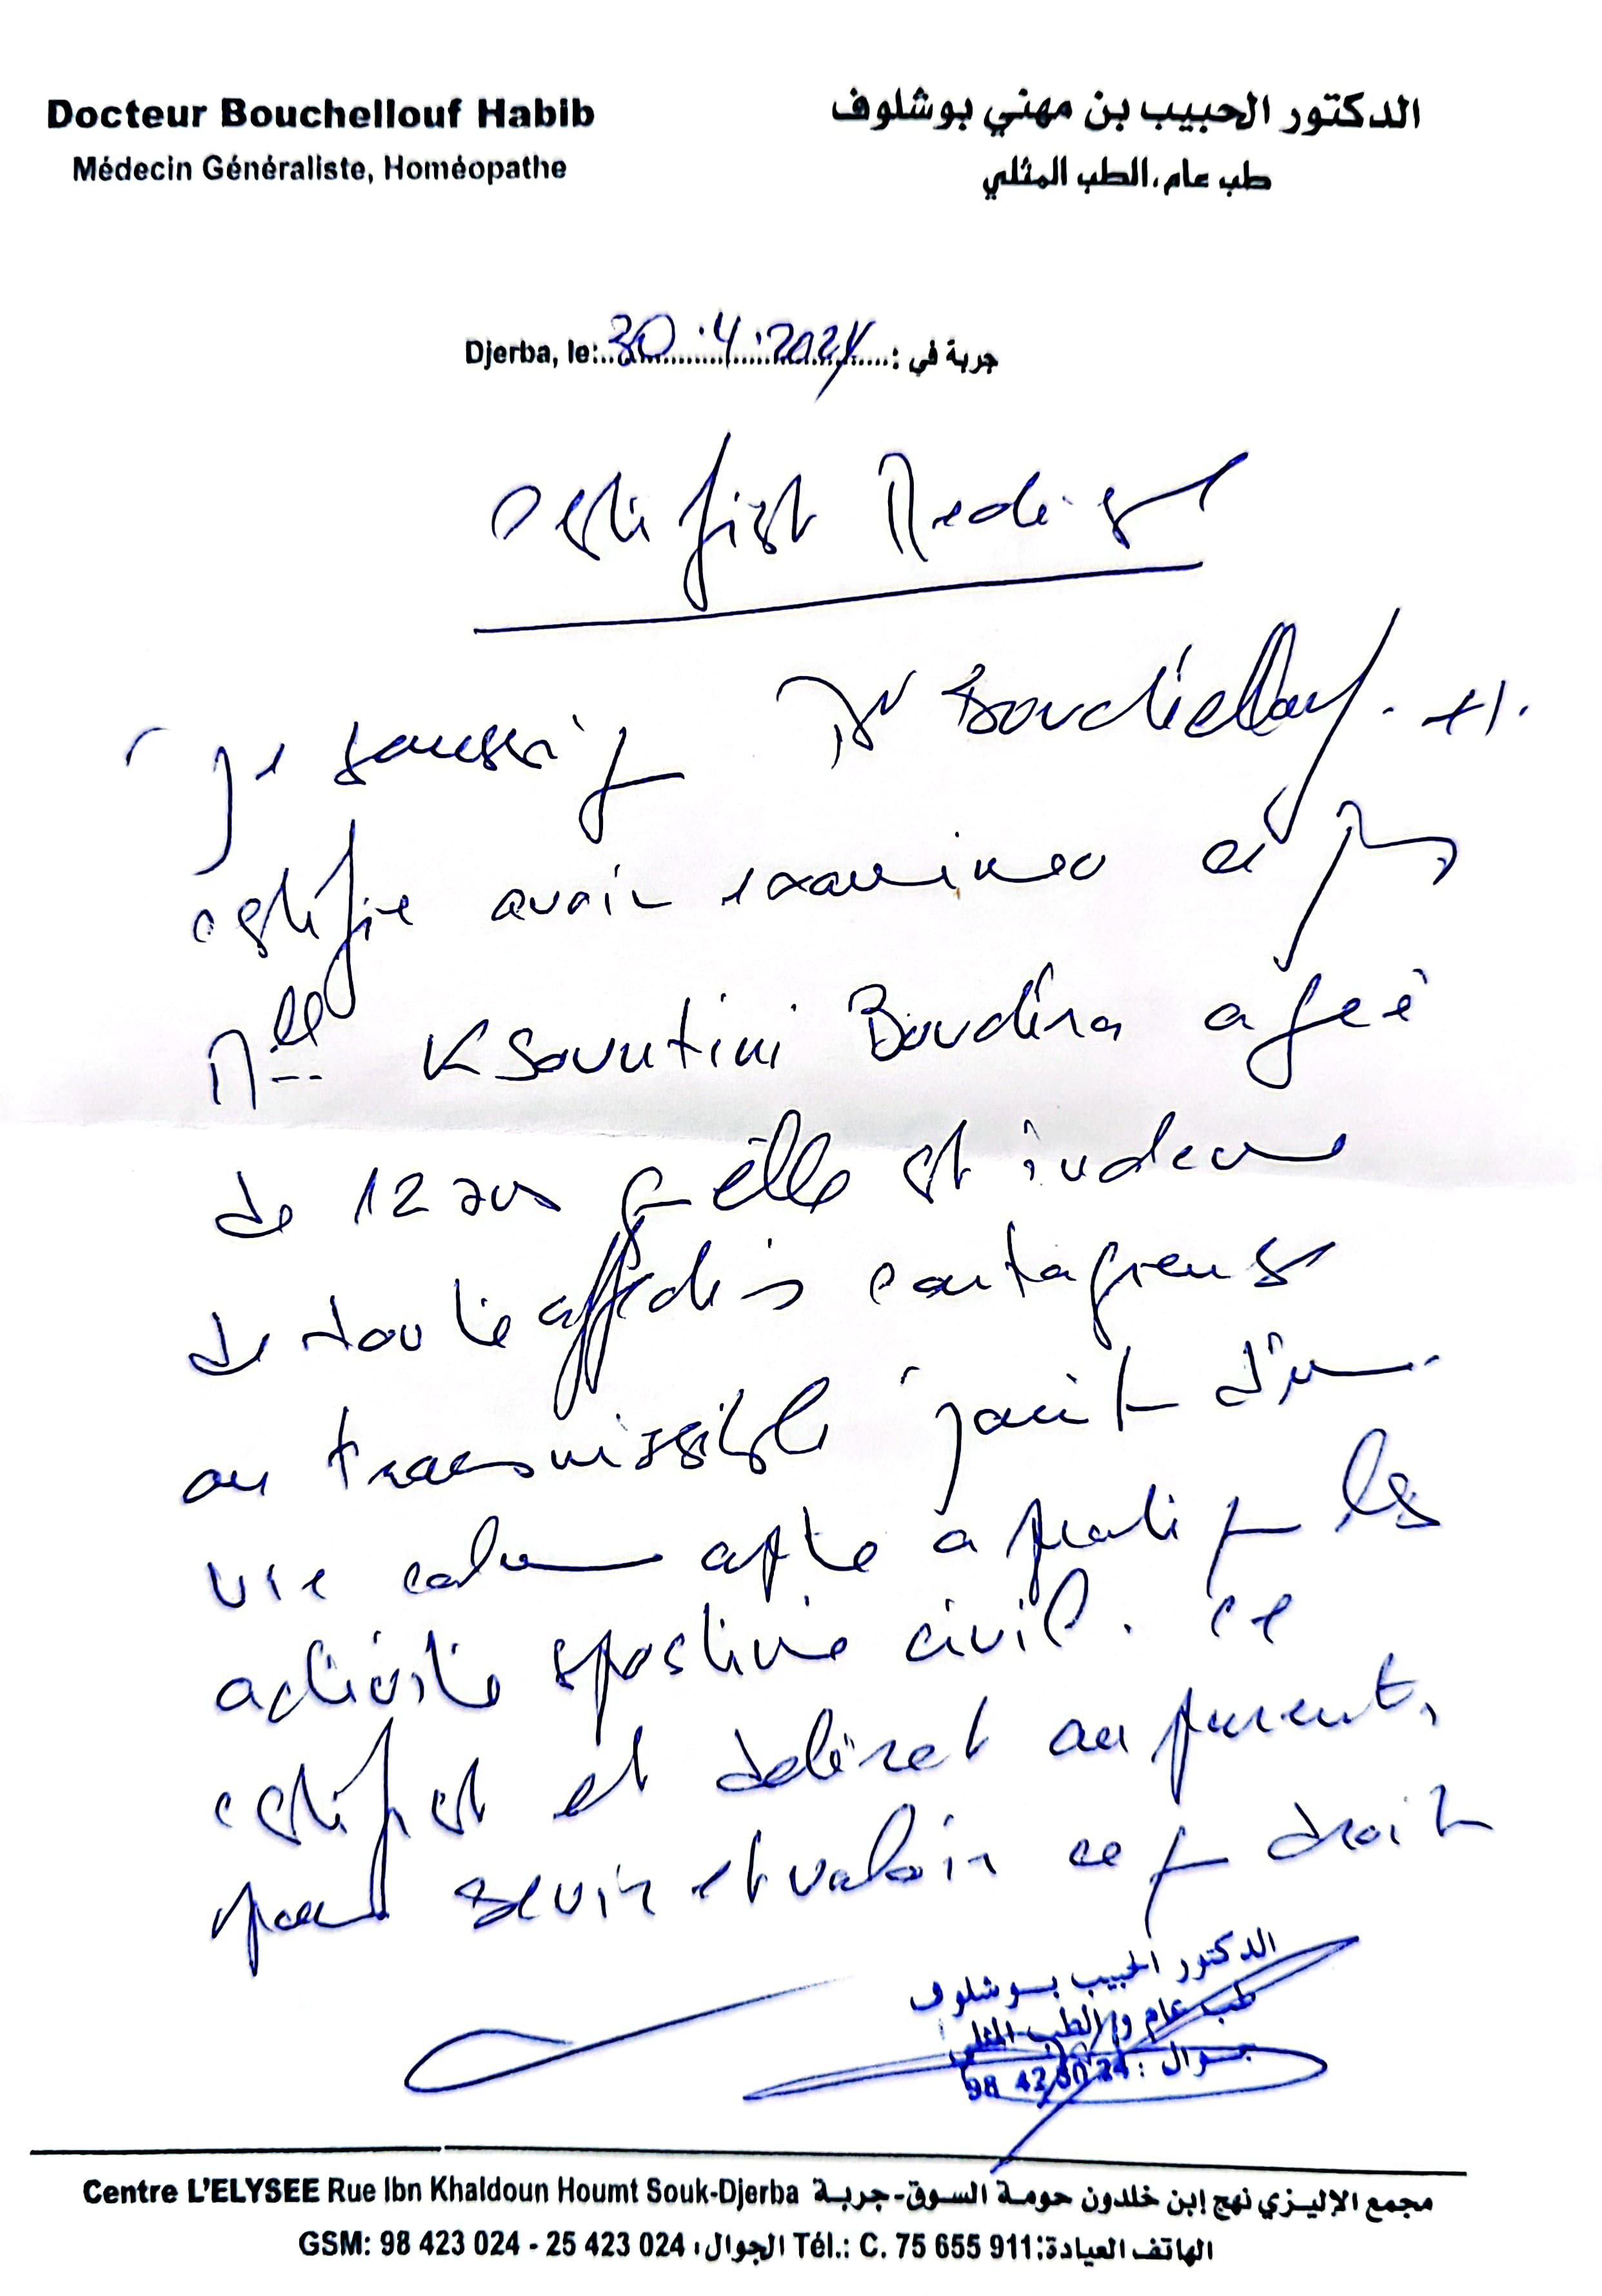 Docteur Bouchellouf Habib
Médecin Généraliste, Homéopathe
الدكتور الحبيب بن مهني بوشلوف
طب عام،الطب المثلي
Djerba, le: 30.4.2024 جربة في :
Certificat Medical
Je soussigné Dr Bouchellouf. H.
certifie avoir examiner ce jour
Mlle Ksountini agée
de 12 ans qu'elle est indemne
de toute affection contagieuse
ou transmissible jouit d'une
vie calme apte a pratiquer les
activité sportive civil. ce
certificat est délivret au parents
pour servir et valoir ce que droit
الدكتور الحبيب بوشلوف
طب عام والطب المثلي
جوال : 98 423 024
Centre L'ELYSEE Rue Ibn Khaldoun Houmt Souk-Djerba مجمع الإليزي نهج إبن خلدون حومة السوق-جربة
GSM: 98 423 024 - 25 423 024 الجوال، Tél.: C. 75 655 911:الهاتف العيادة